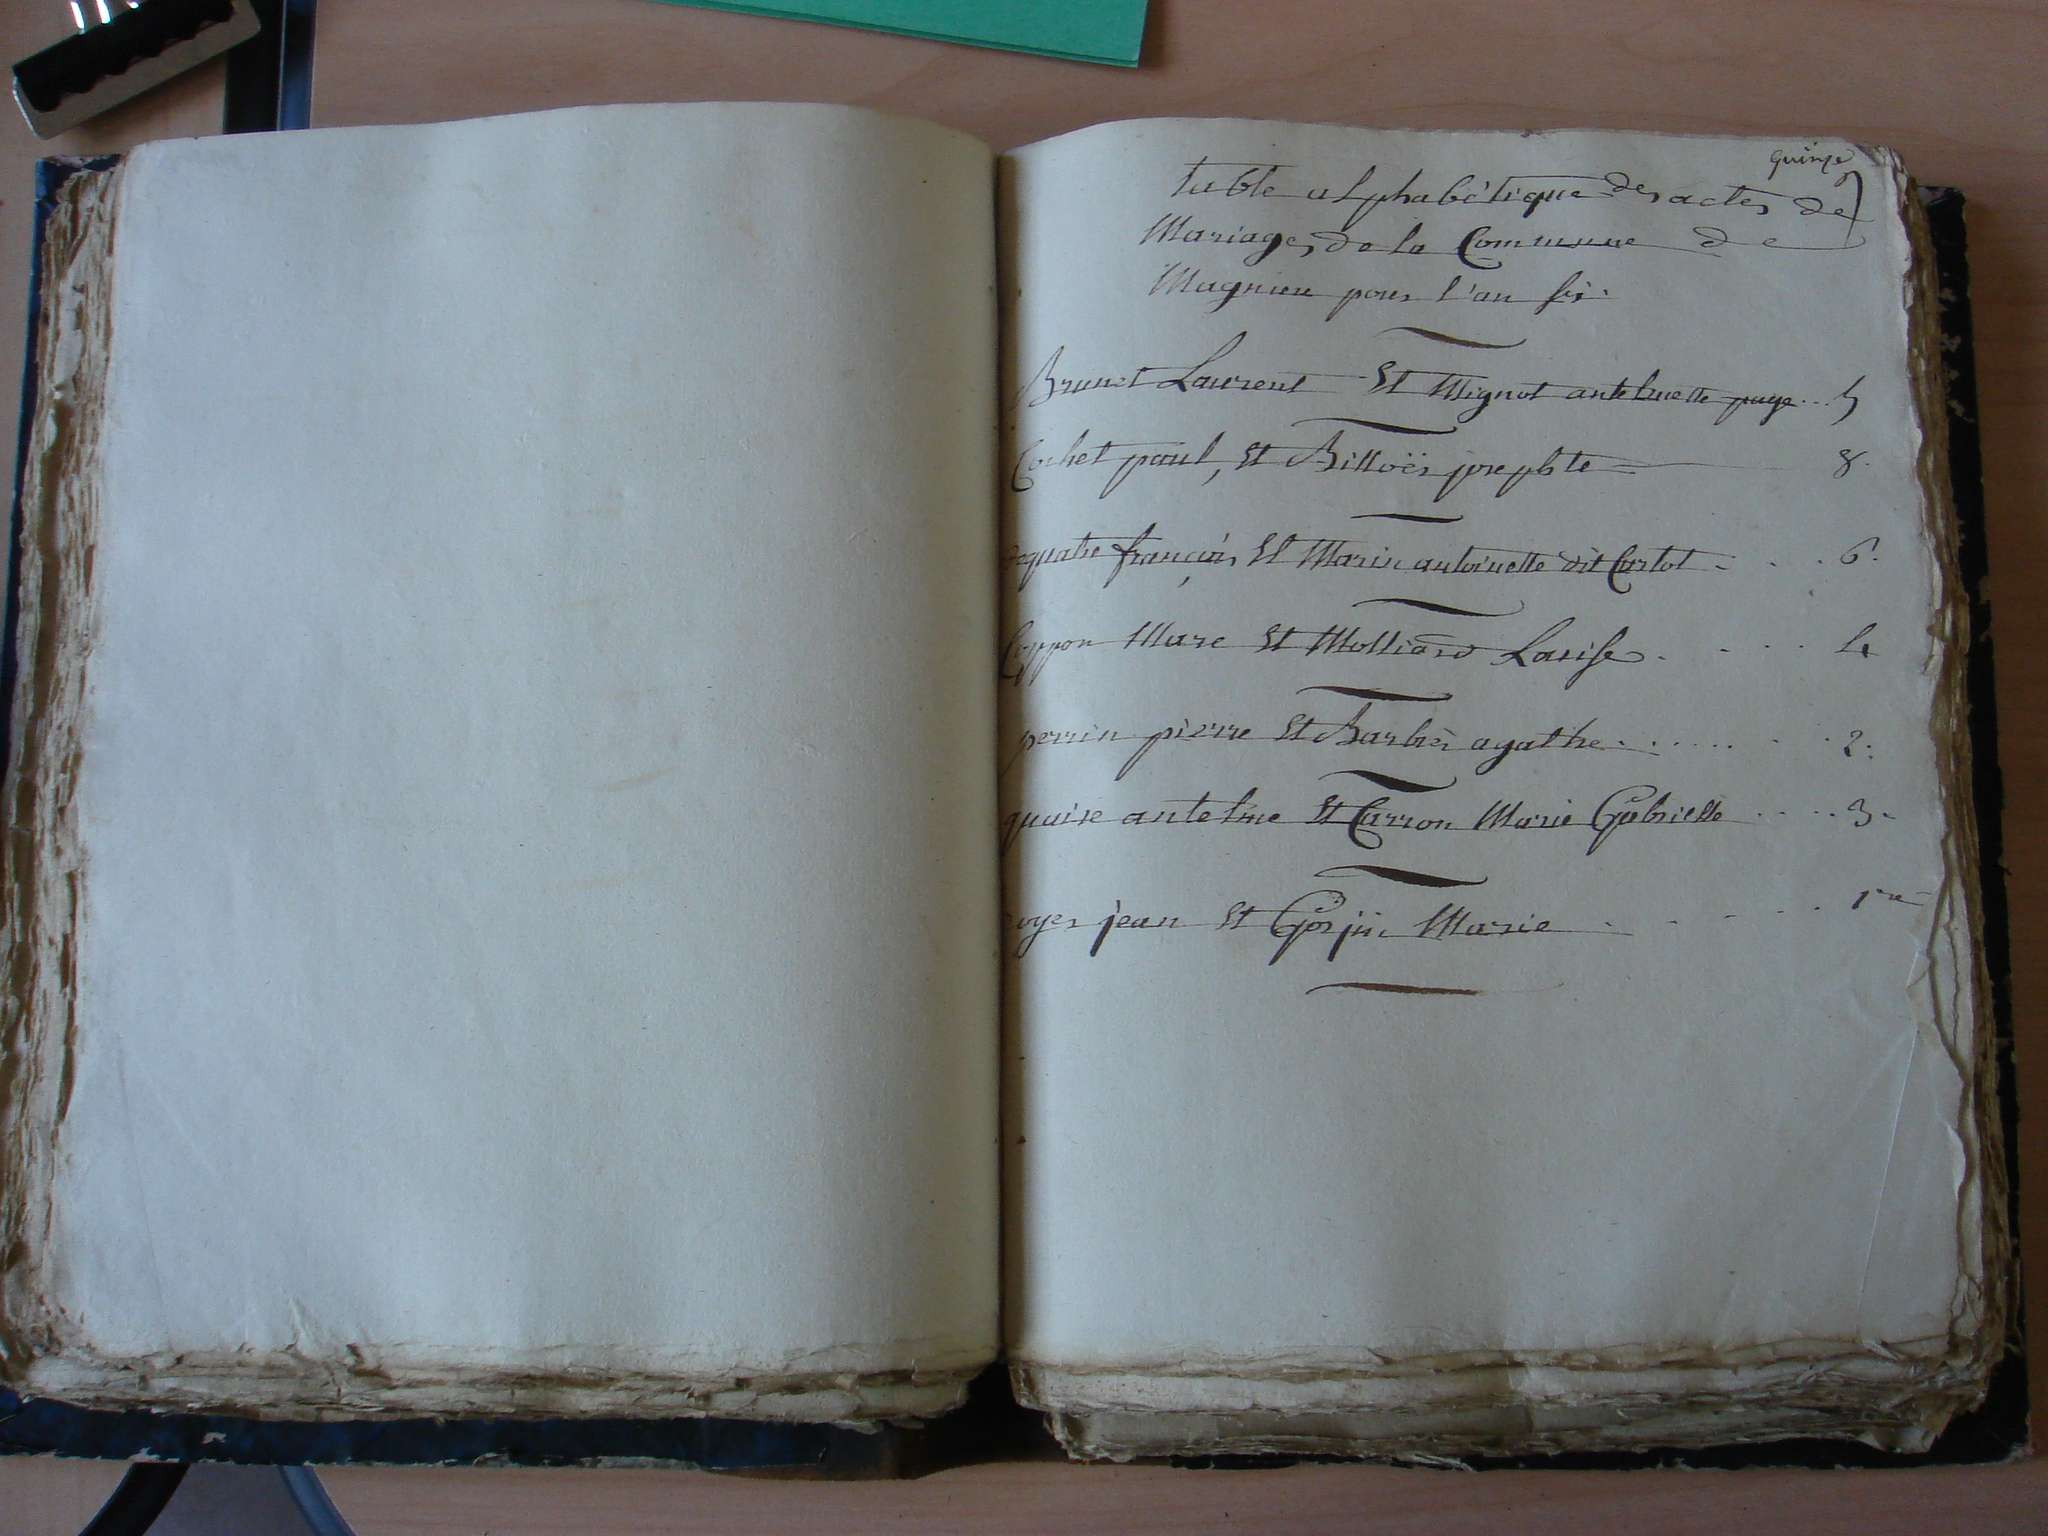 quinze
table alphabétique des actes de
Mariages de la Commune de
Magnieu pour l'an six.
Brunet Laurent Et Mignot antelmette page ... 5
Cochet paul, Et Billoës josephte 8.
dequatre françois Et Marie antoinette dit Curtot . . . 6.
Coppon Marc Et Molliard Louise . . . . 4
perrin pierre Et Barbier agathe . . . . . . . 2.
antelme Et Carron Marie Gabrielle . . . . 3.
jean Et Marie . . . . . 1re